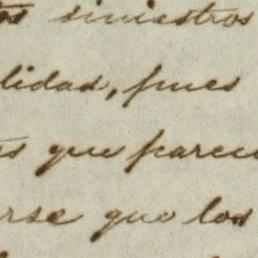 siniestros
lidad, pues
que parec
rse que los